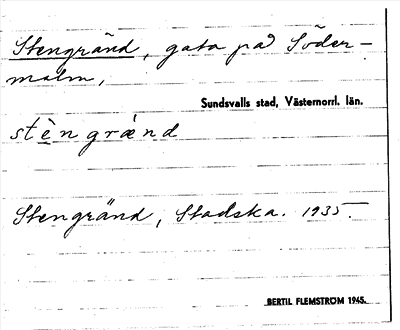 Stengränd, gata på Söder-
malm,
Sundsvalls stad, Västernorrl. län.
stèngrænd
Stengränd, Stadska. 1935.
BERTIL FLEMSTRÖM 1945.